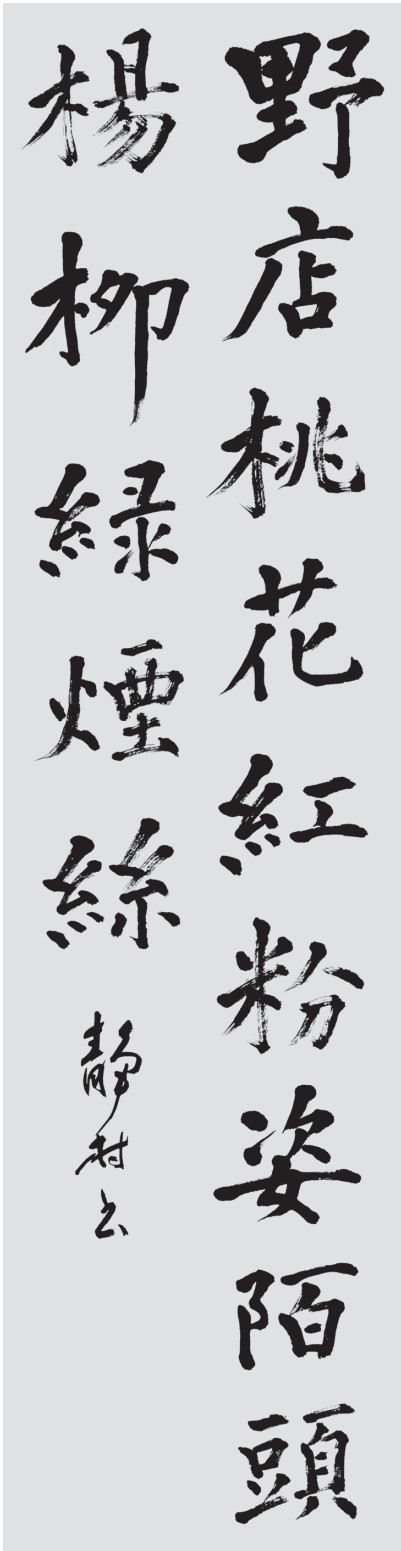 野店桃花紅粉姿陌頭
楊柳緑煙絲
靜村书